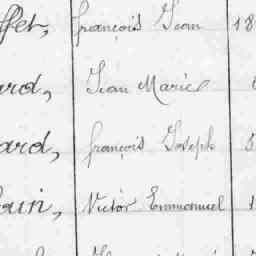 ffet, françois Jean 18
ard, Jean Marie
ard, françois Joseph 5
Victor Emmanuel 1